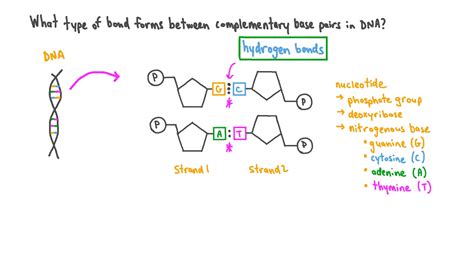 What type of bond forms between complementary base pairs in DNA?
hydrogen bonds
DNA
P G C P
*
P A T P
*
Strand 1 Strand 2
nucleotide
→ phosphate group
→ deoxyribose
→ nitrogenous base
• guanine (G)
• cytosine (C)
• adenine (A)
• thymine (T)